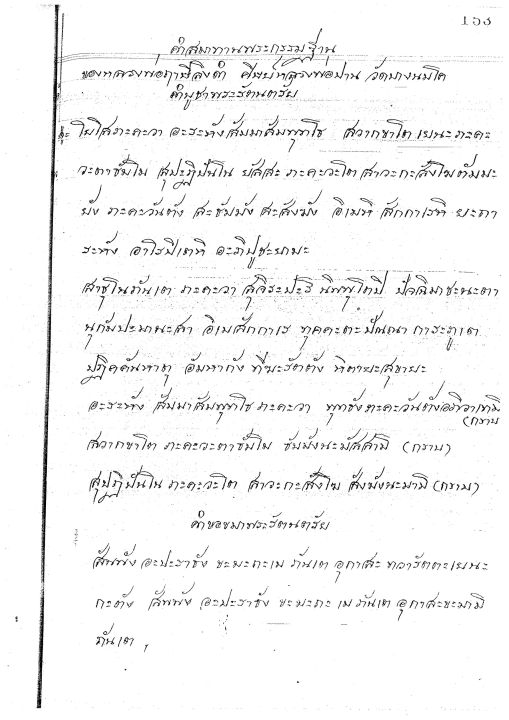 153
คำสมาทานพระกรรมฐาน
ของหลวงพ่อฤาษีลิงดำ ศิษย์หลวงพ่อปาน วัดบางนมโค
คำบูชาพระรัตนตรัย
โยโสภะคะวา อะระหังสัมมาสัมพุทโธ สวากขาโต เยนะ ภะคะ
วะตาธัมโม สุปะฏิปันโน ยัสสะ ภะคะวะโต สาวะกะสังโฆ ตัมมะ
ยัง ภะคะวันตัง สะธัมมัง สะสังฆัง อิเมหิ สักกาเรหิ ยะถา
ระหัง อาโรปิเตหิ อะภิปูชะยามะ
สาธุโนภันเต ภะคะวา สุจิระปะริ นิพพุโตปิ ปัจฉิมาชะนะตา
นุกัมปะมานะสา อิเมสักกาเร ทุคคะตะ ปัณณา การะภูเต
ปฏิคคัณหาตุ อัมหากัง ทีฆะรัตตัง หิตายะสุขายะ
อะระหัง สัมมาสัมพุทโธ ภะคะวา พุทธังภะคะวันตังอภิวาเทมิ
(กราบ
สวากขาโต ภะคะวะตาธัมโม ธัมมังนะมัสสามิ (กราบ)
สุปฏิปันโน ภะคะวะโต สาวะกะสังโฆ สังฆังนะมามิ (กราบ)
คำขอขมาพระรัตนตรัย
สัพพัง อะปะราธัง ขะมะถะเม ภันเต อุกาสะ ทวารัตตะเยนะ
กะตัง สัพพัง อะปะราธัง ขะมะถะ เม ภันเต อุกาสะขะมามิ
ภันเต